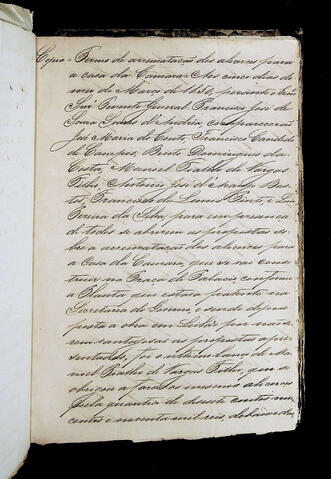 Copia - Termo de arrematação dos alicerces para
a casa da Camara - Aos cinco dias do
mez de Março de 1850, perante o Exmo
Snr Tenente General Francisco José de
Souza Soares d'Andréa, compareceram
José Maria do Couto, Francisco Candido
de Campos, Bento Domingues da
Costa, Manoel Fialho de Vargas
Filho, Antonio José de Araujo Bas-
tos, Francisco de Lemos Pinto, e
Pereira da Silva, para em presença
de todos se abrirem as propostas so-
bre a arrematação dos alicerces para
a Casa da Camara, que se vai cons-
truir na Praça de Palacio, conforme
a Planta que estava patente na
Secretaria do Governo, e sendo depois
posta a obra em Leilão por não se-
rem vantajosas as propostas apre-
sentadas, foi o ultimo lanço de Ma-
noel Fialho de Vargas Filho, que se
obrigou a fazer os mesmos alicerces
pela quantia de desasete contos nove
centos e noventa mil reis, debaixo das